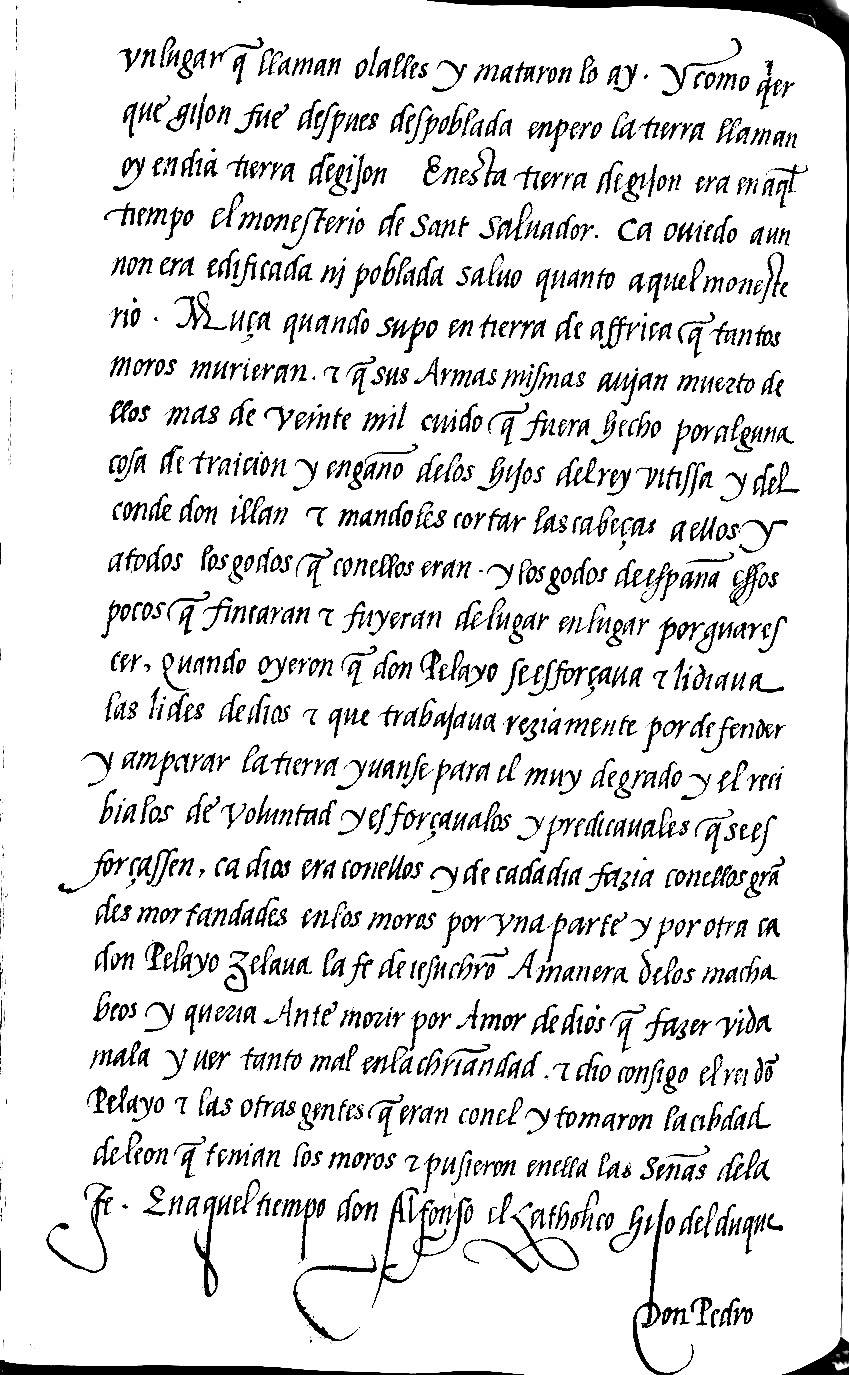 vn lugar q̃ llaman olalles y mataron lo ay. y como q̃er
que gijon fue despues despoblada enpero la tierra llaman
oy en dia tierra de gijon Enesta tierra de gijon era en aq̃l
tiempo el monesterio de Sant Saluador. Ca ouiedo aun
non era edificada nj poblada saluo quanto aquel moneste
rio. Muça quando supo en tierra de affrica q̃ tantos
moros murieran. τ q̃ sus Armas mismas aujan muerto de
llos mas de veinte mil cuido q̃ fuera hecho por alguna
cosa de traicion y engaño delos hijos del rey vitissa y del
conde don illan τ mandoles cortar las cabeças a ellos y
a todos los godos q̃ conellos eran. y los godos de españa essos
pocos q̃ fincaran τ fuyeran de lugar en lugar por guares
cer, quando oyeron q̃ don Pelayo se esforçaua τ lidiaua
las lides de dios τ que trabajaua reziamente por defender
y amparar la tierra yuanse para el muy de grado y el reci
bialos de voluntad y esforçaualos y predicauales q̃ se es
forçassen, ca dios era conellos y de cada dia fazia conellos grã
des mortandades enlos moros por vna parte y por otra ca
don Pelayo zelaua la fe de iesuchr̃o A manera delos macha
beos y queria Ante morir por Amor de dios q̃ fazer vida
mala y uer tanto mal enla chr̃iandad. τ dio consigo el rei dõ
Pelayo τ las otras gentes q̃ eran conel y tomaron la cibdad
de leon q̃ tenian los moros τ pusieron enella las Señas dela
Fe. Enaquel tiempo don Alfonso el Catholico hijo del duque
Don Pedro